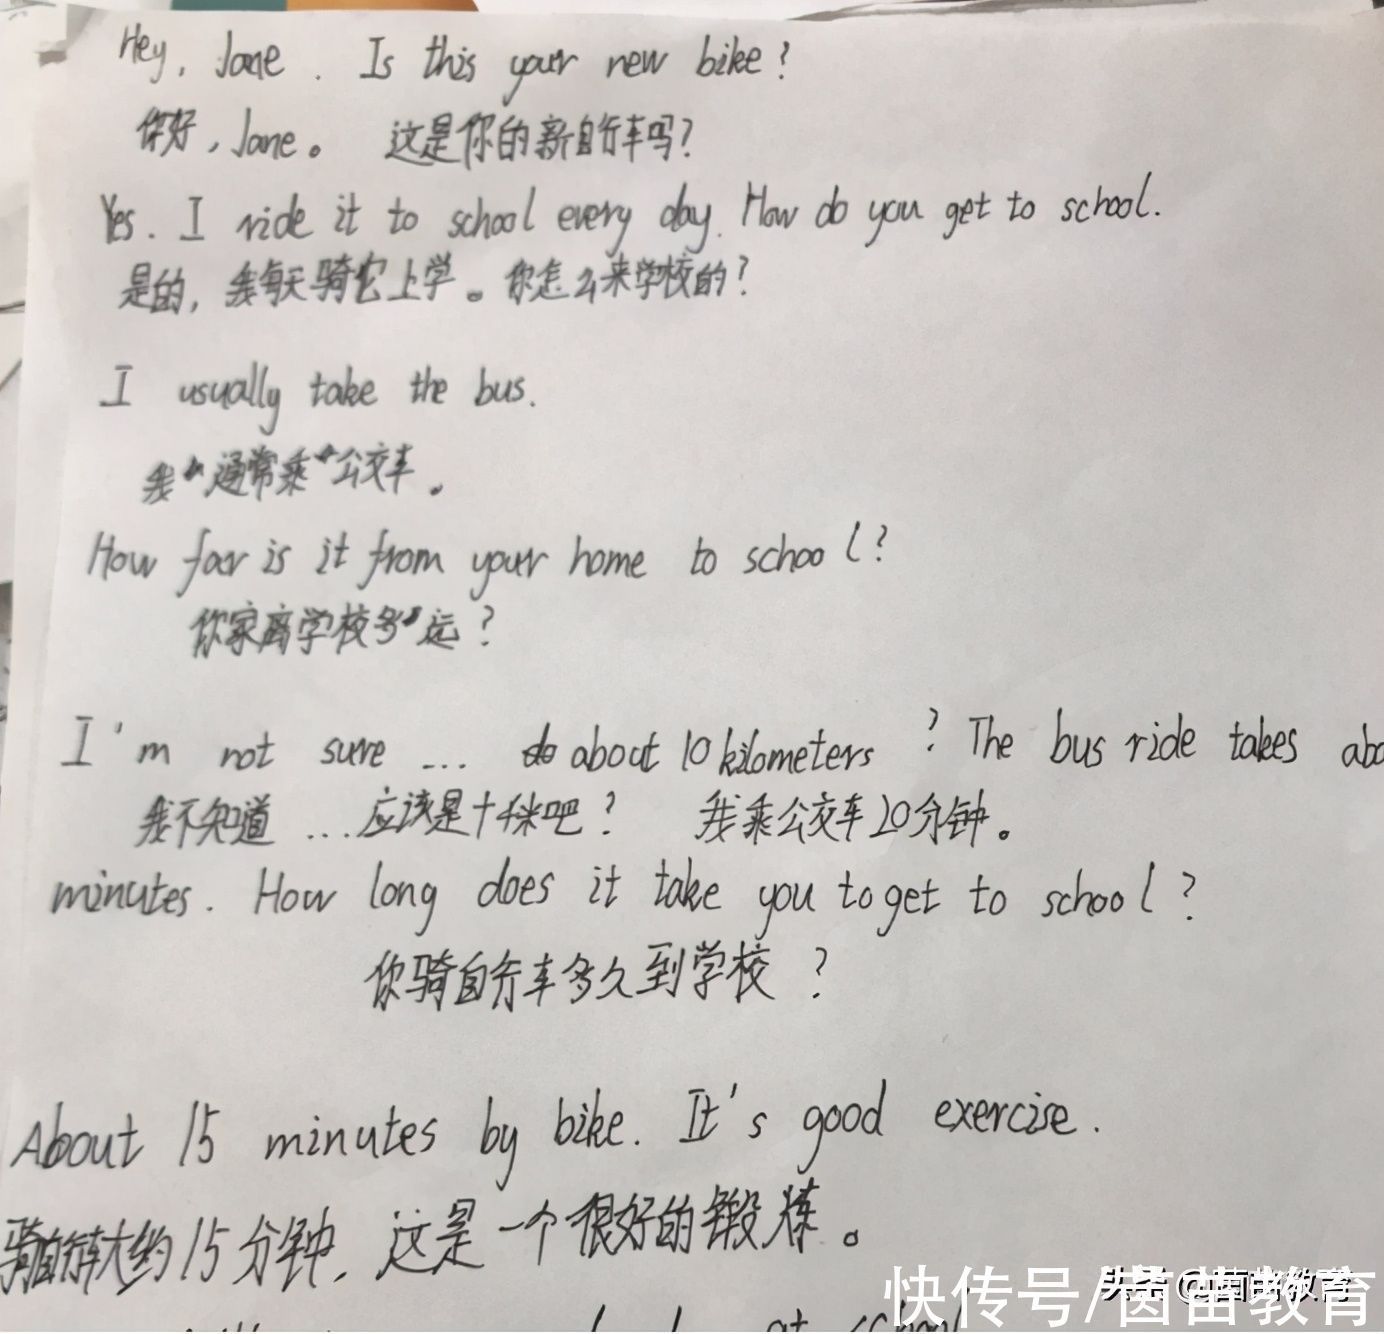 Hey, Jane. Is this your new bike?
你好,Jane。 这是你的新自行车吗?
Yes. I ride it to school every day. How do you get to school.
是的,我每天骑它上学。你怎么来学校的?
I usually take the bus.
我通常乘公交车。
How far is it from your home to school?
你家离学校多远?
I'm not sure ... about 10 kilometers ? The bus ride takes
我不知道 ...应该是十千米吧? 我乘公交车20分钟。
minutes. How long does it take you to get to school?
你骑自行车多久到学校?
About 15 minutes by bike. It's good exercise.
骑自行车大约15分钟,这是一个很好的锻炼。
at school
快传号/茵苗教育
头条 @茵苗教育